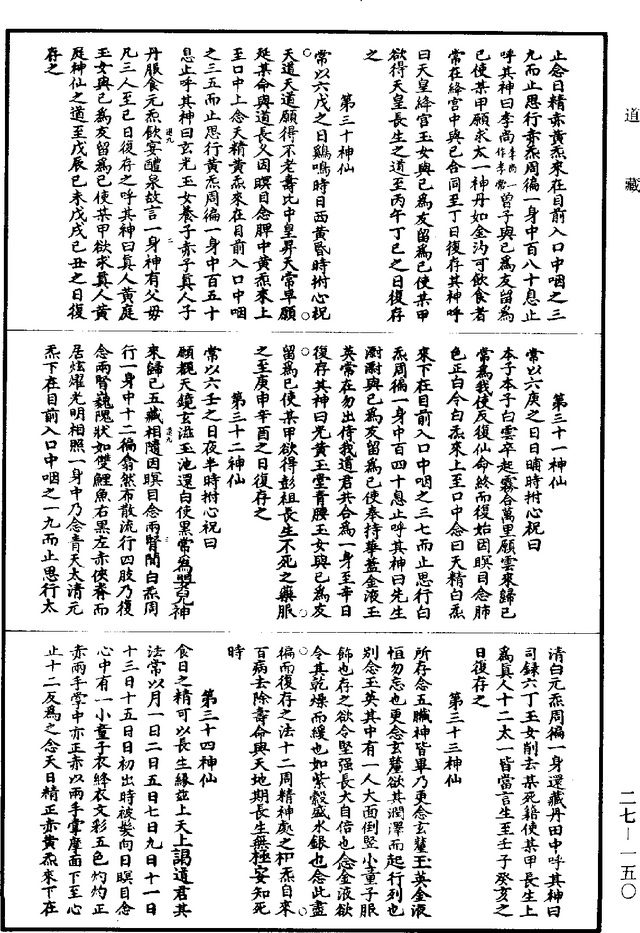 道藏
止念日精赤黃炁來在目前入口中咽之三
九而止思行赤炁周徧一身中百八十息止
呼其神曰李尚李尚一作李常曾子與己為友留為
己使某甲願求太一神丹如金沟可飲食者
常在絳宮中與己合同至丁日復存其神呼
曰天皇絳宮玉女與己為友留為己使某甲
欲得天皇長生之道至丙午丁巳之日復存
之
第三十神仙
常以六戊之日鷄鳴時日西黃昏時拊心祝
天道天道願得不老壽比中皇昇天常早願
延某命與道長久因瞑目念脾中黃炁來上
至口中上念天精黃炁來在目前入口中咽
之三五而止思行黃炁周徧一身中百五十
息止呼其神曰玄光玉女養子赤子真人子
丹服食元炁飲宴醴泉故言一身神有父母
凡三人至己日復存之呼其神曰真人黃庭
玉女與己為友留為己使某甲欲求真人黃
庭神仙之道至戊辰己未戊戌己丑之日復
存之
第三十一神仙
常以六庚之日日晡時拊心祝曰
本子本子白雲卒起霧合萬里願雲來歸己
常為我使反復仙命終而復始因瞑目念肺
色正白令白炁來上至口中念曰天精白炁
來下在目前入口中咽之三七而止思行白
炁周徧一身中百四十息止呼其神曰先生
㴬㴬與己為友留為己使奉持華蓋金液玉
英常在勿出侍我道君共合為一身至辛日
復存其神曰光黃玉堂青腰玉女與己為友
留為己使某甲欲得彭祖長生不死之藥服
之至庚申辛酉之日復存之
第三十二神仙
常以六壬之日夜半時拊心祝曰
願觀天鏡玄滋玉池還白使黑常為嬰兒神
來歸己五藏相隨因瞑目念兩腎間白炁周
行一身中十二徧翕然布散流行四肢乃復
念兩腎巍隗狀如雙鯉魚右黑左赤俠脊而
居炫燿光明相照一身中乃念青天太清元
炁下在目前入口中咽之一九而止思行太
清白元炁周徧一身還藏丹田中呼其神曰
司錄六丁玉女削去某死籍使某甲長生上
為真人十二太一皆當言生至壬子癸亥之
日復存之
第三十三神仙
所存念五臟神皆畢乃更念玄鼇玉英金液
恒勿忘也更念玄鼇欲其潤澤而起行列也
別念玉英其中有一人大面倒豎小童子服
飾也存之欲令堅强長大自倍也念金液欲
令其乾燥而緩也如紫縠盛水銀也念此盡
徧而復存之法十二周精神處之和炁自來
百病去除壽命與天地期長生無極安知死
時
第三十四神仙
食日之精可以長生緣益上天上謁道君其
法常以月一日二日五日七日九日十一日
十三日十五日日初出時被髮向日瞑目念
心中有一小童子衣絳衣文彩五色灼灼正
赤兩手掌中亦正赤以兩手掌摩面下至心
止十二反為之念天日精正赤黃炁來下在
二七—一五〇